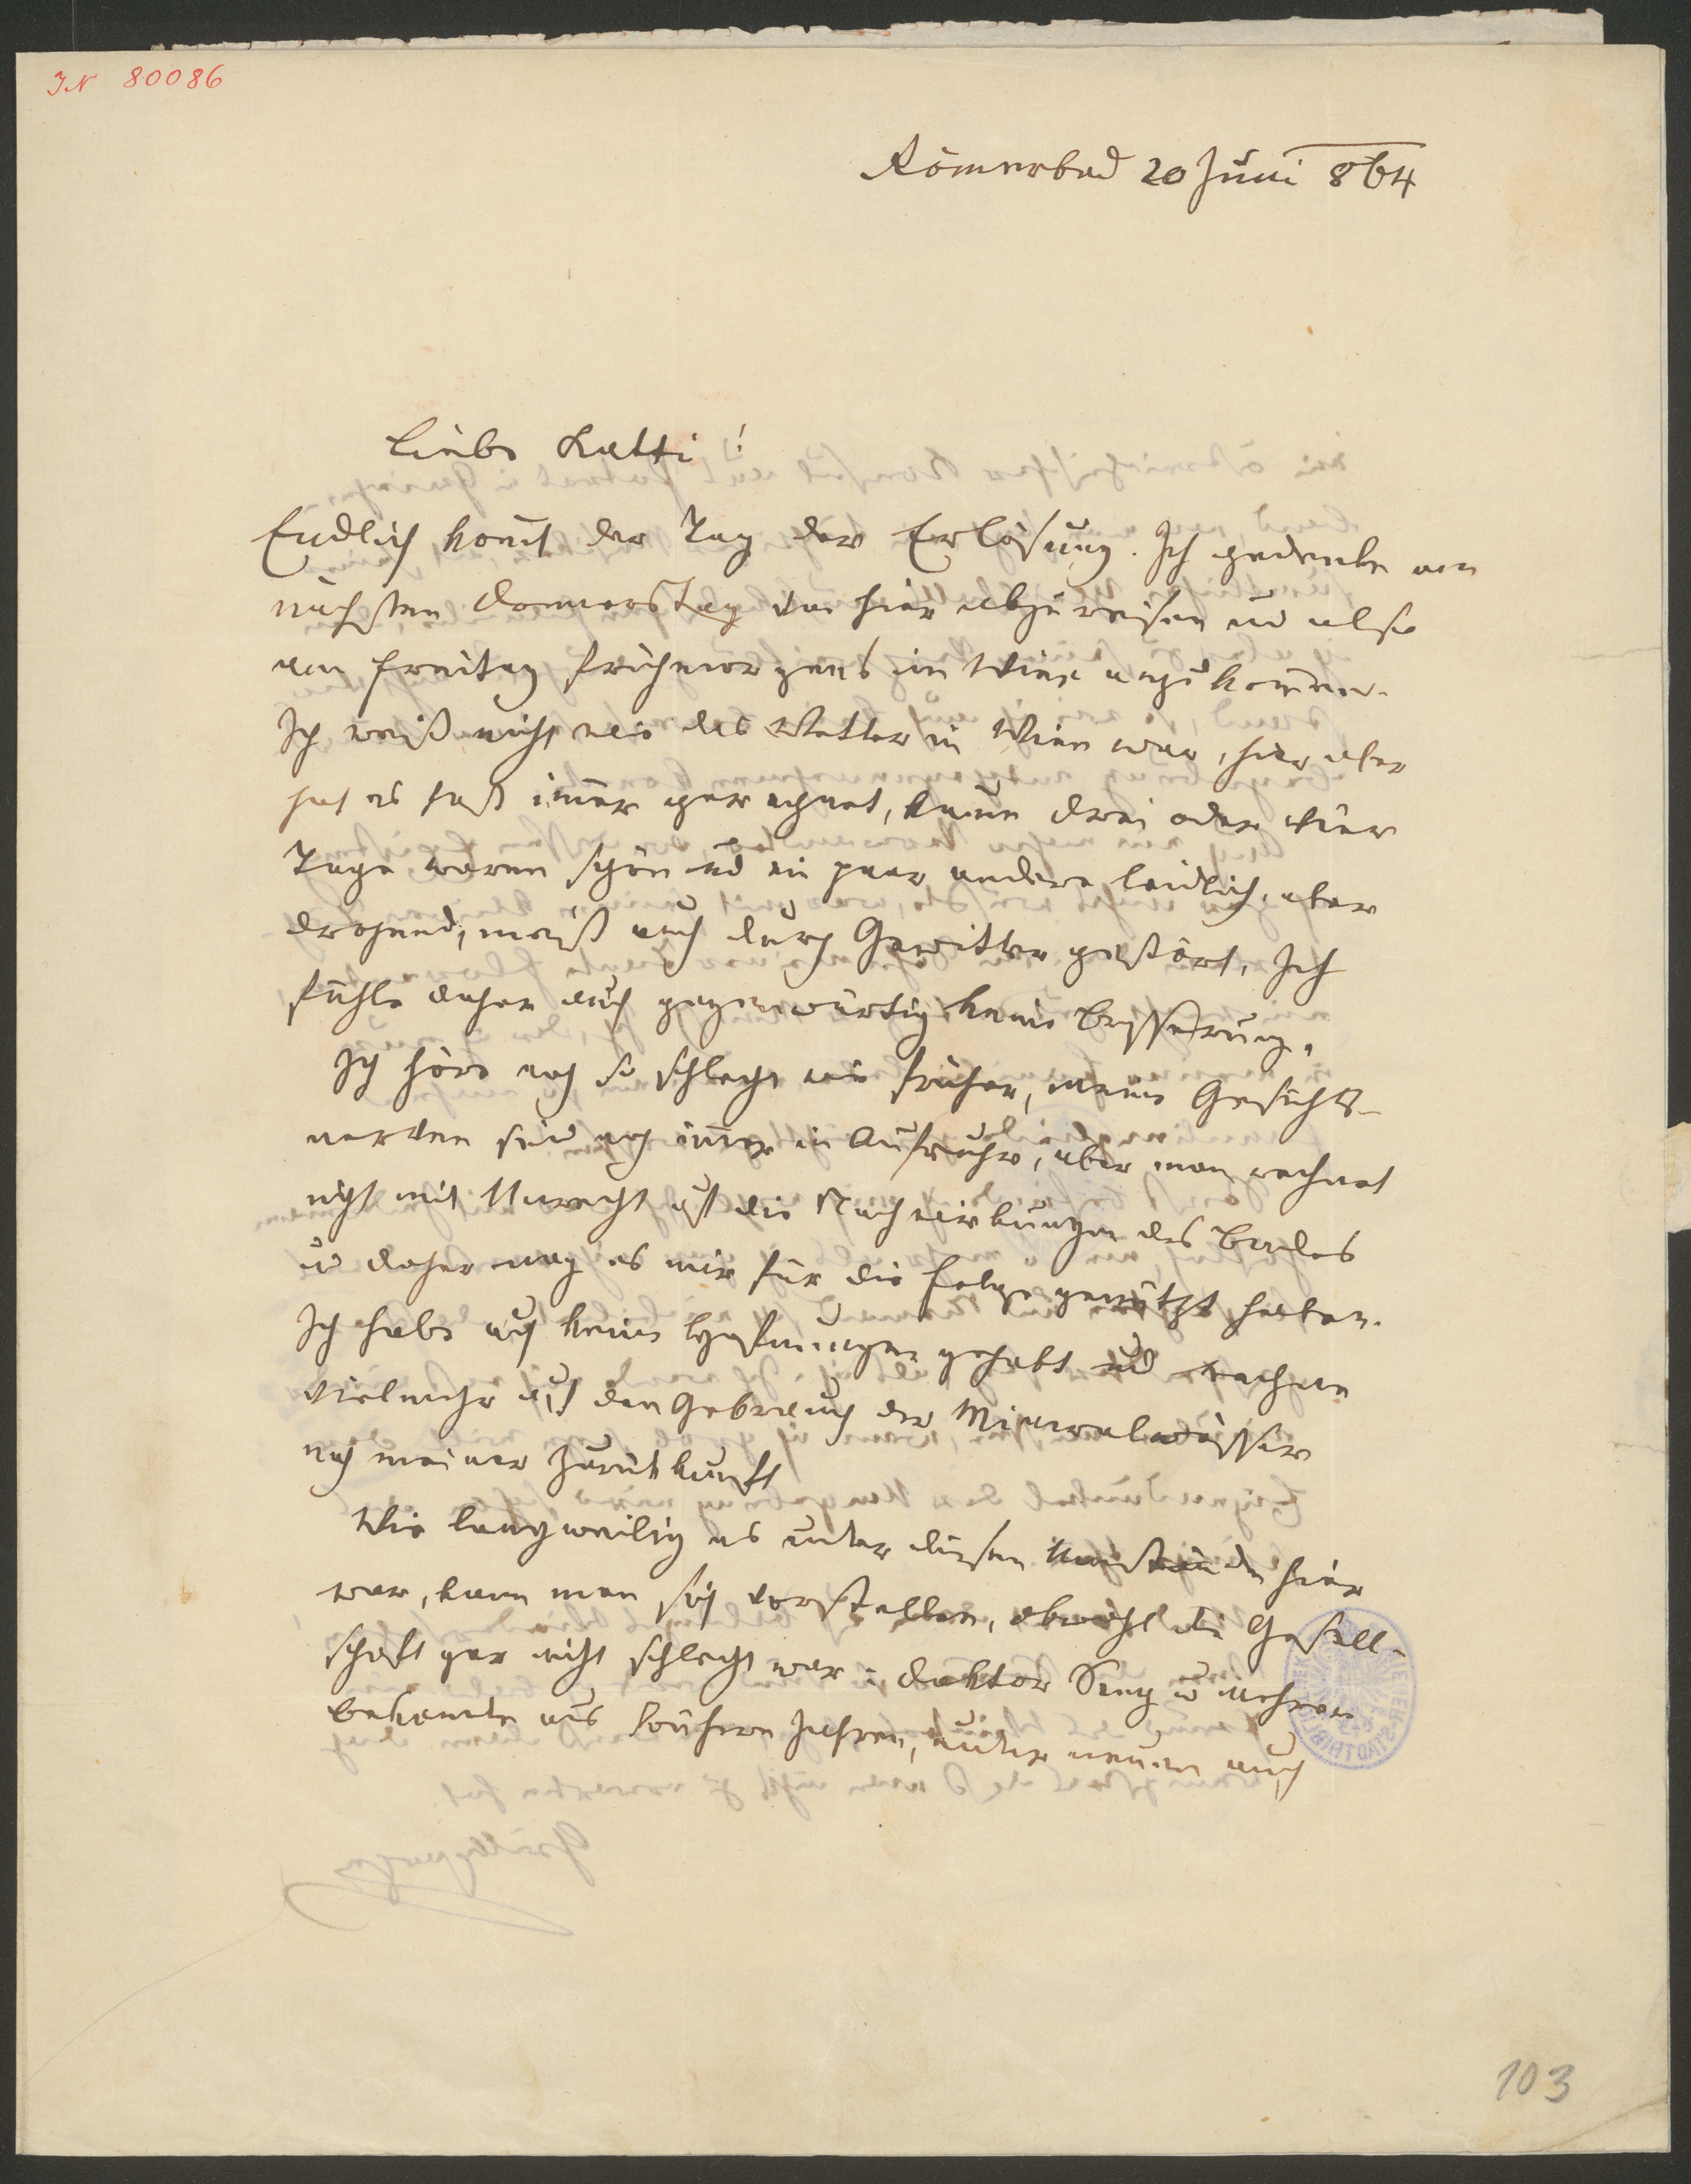 IN 80086
Römerbad 20 Juni 864
Liebe Katti!
Endlich kom̄t der Tag der Erlösung. Ich gedenke am
nächsten Donnerstag von hier abzureisen und also
am Freitag frühmorgens in Wien anzukom̄en.
Ich weiß nicht wie das Wetter in Wien war, hier aber
hat es fast im̄er geregnet, kaum drei oder vier
Tage waren schön und ein paar andere leidlich, aber
drohend, meist auch durch Gewitter gestört. Ich
fühle daher auch gegenwärtig keine Besserung.
Ich höre noch so schlecht wie früher, meine Gesichts-
nerven sind noch im̄er in Aufruhr, aber man rechnet
nicht mit Unrecht auf die Nachwirkungen des Bades
u daher mag es mir für die Folge genützt haben.
Ich habe auch keine Hoffnungen gehabt und rechne
vielmehr auf den Gebrauch der Mineralwässer
nach meiner Zurückkunft
Wie langweilig es unter diesen Umständen hier
war, kann man sich vorstellen, obwohl die Gesell-
schaft gar nicht schlecht war: Doktor u mehrere
Bekannte aus frühern Jahren, unter neuen auch
103